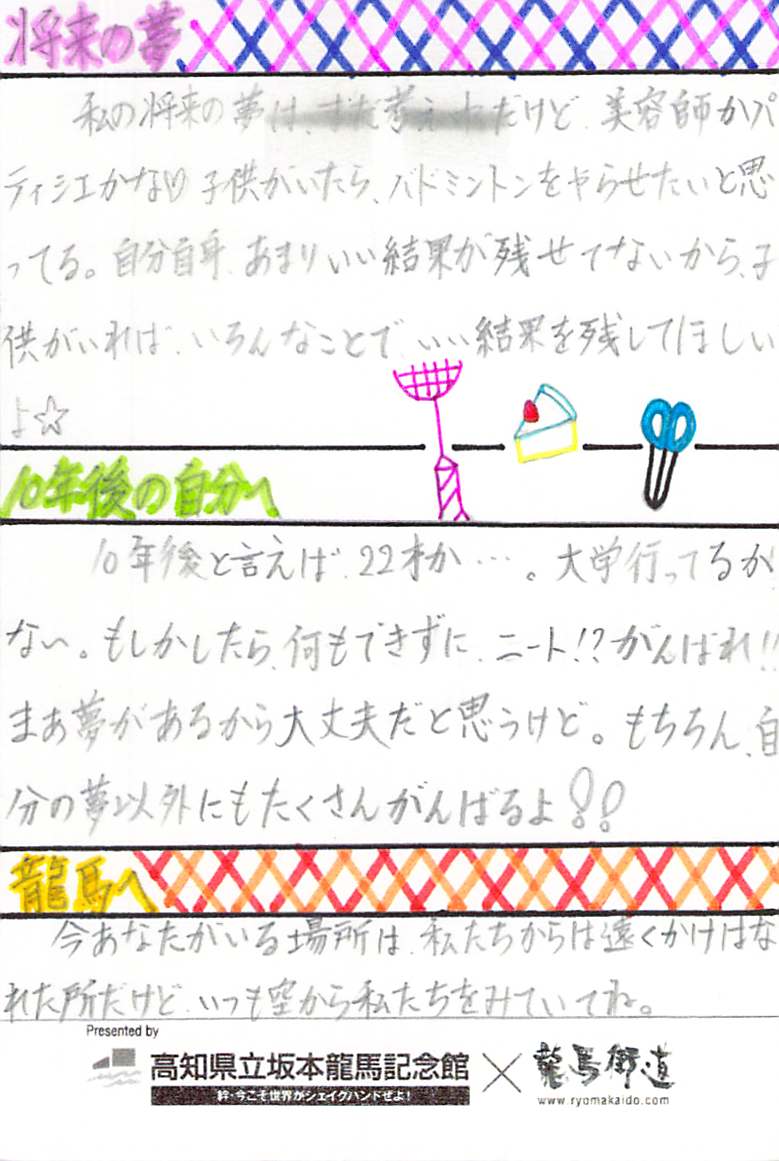 将来の夢
私の将来の夢は、まだ考え中だけど、美容師かパ
ティシエかな♡子供がいたら、バドミントンをやらせたいと思
ってる。自分自身、あまりいい結果が残せてないから、子
供がいれば、いろんなことで、いい結果を残してほしい
よ☆
10年後の自分へ
10年後と言えば、22才か…。大学行ってるか
な〜。もしかしたら、何もできずに、ニート!?がんばれ!!
まぁ夢があるから大丈夫だと思うけど。もちろん、自
分の夢以外にもたくさんがんばるよ!!
龍馬へ
今あなたがいる場所は、私たちからは遠くかけはな
れた所だけど、いつも空から私たちをみていてね。
Presented by
高知県立坂本龍馬記念館×龍馬街道
絆・今こそ世界がシェイクハンドぜよ!
www.ryomakaido.com